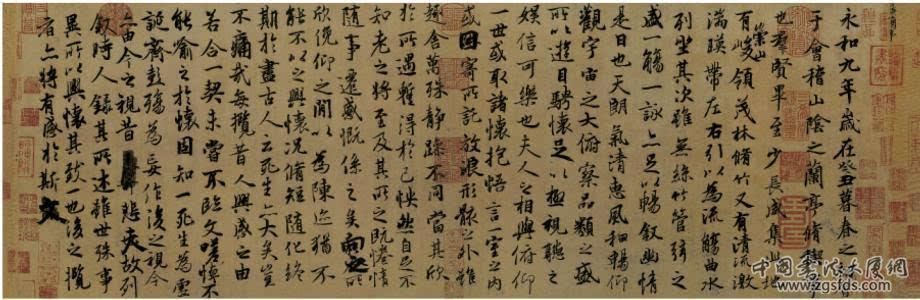 永和九年歲在癸丑暮春之初會
于會稽山陰之蘭亭脩禊事
也羣賢畢至少長咸集此地
有崇山峻領茂林脩竹又有清流激
湍暎帶左右引以為流觴曲水
列坐其次雖無絲竹管弦之
盛一觴一詠亦足以暢叙幽情
是日也天朗氣清惠風和暢仰
觀宇宙之大俯察品類之盛
所以遊目騁懷足以極視聽之
娛信可樂也夫人之相與俯仰
一世或取諸懷抱悟言一室之內
或因寄所託放浪形骸之外雖
趣舍萬殊靜躁不同當其欣
於所遇暫得於己怏然自足不
知老之將至及其所之既惓情
隨事遷感慨係之矣向之所
欣俛仰之閒以為陳迹猶不
能不以之興懷況脩短隨化終
期於盡古人云死生亦大矣豈
不痛哉每攬昔人興感之由
若合一契未嘗不臨文嗟悼不
能喻之於懷固知一死生為虛
誕齊彭殤為妄作後之視今
亦由今之視昔悲夫故列
叙時人錄其所述雖世殊事
異所以興懷其致一也後之攬
者亦將有感於斯文
中国书法大展网
www.zgsfds.com